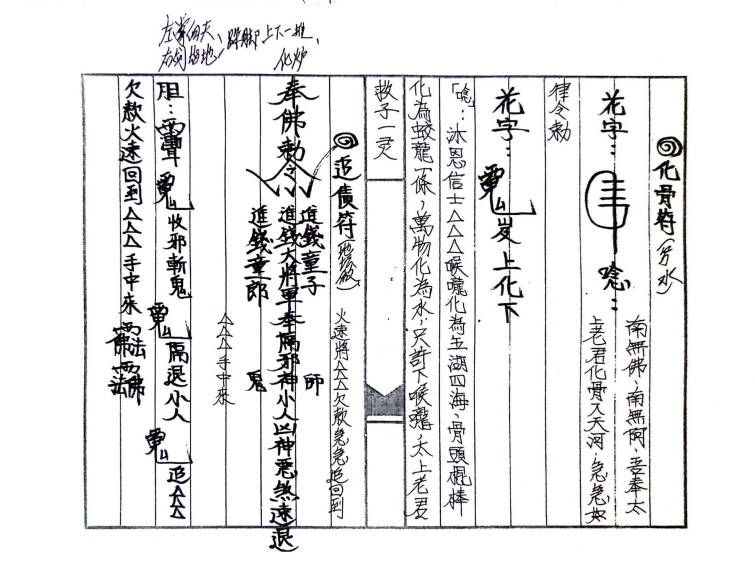 化骨符(符水)
花字:唸:
南無佛、南無阿、吾奉太
上老君化骨入天河、急急如
律令勅
花字: 岌上化下
「唸:沐恩信士△△△喉嚨化為五湖四海、骨頭棍棒
化為蛟龍一條,萬物化為水,只許下喉嚨、太上老君
救子一灵
追債符
火速將△△△欠款急急追回到
△△△手中來
奉佛勅令
進錢童子師
進錢大將軍奉隔邪神小人凶神惡煞速退
進錢童郎鬼
左掌
右剣指地、蹂脚上下一推、
化炉
胆:
收邪斬鬼 隔退小人 追△△△
欠款火速回到△△△手中來
佛法佛法